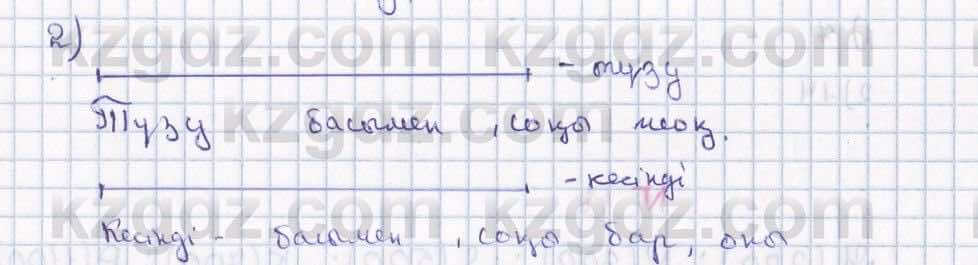 2)
kzgdz.com kzgdz.com
- түзу
Түзу басымен , соңы жоқ.
kzgdz.com kzgdz.com
- кесінді
kzgdz.com kzgdz.com
Кесінді - басымен , соңы бар, оны